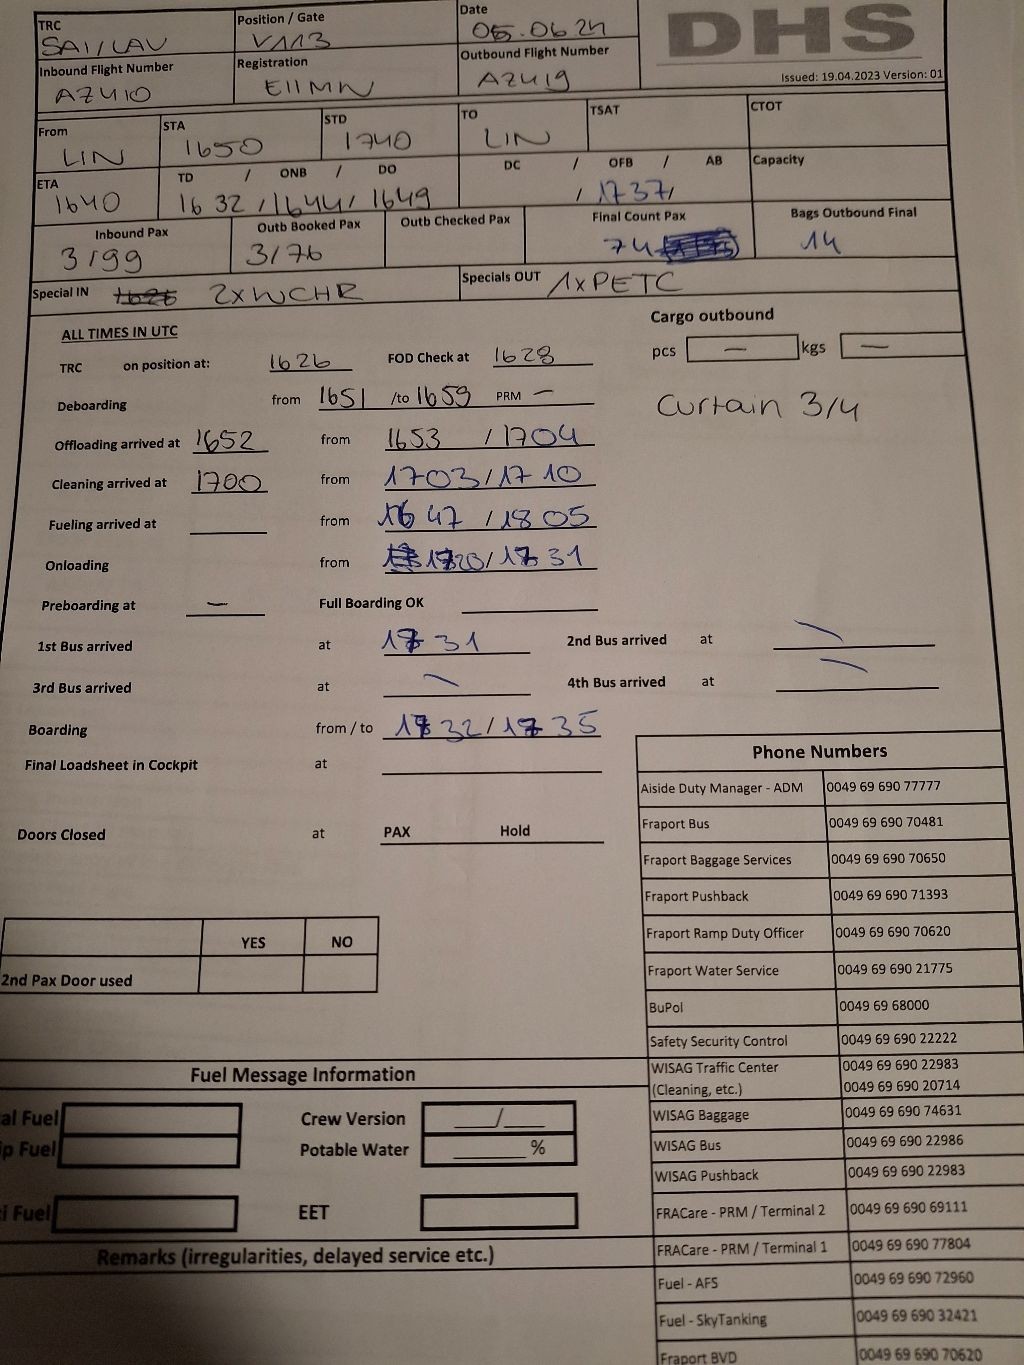 TRC SAI/LAV Position / Gate V113 Date 05.06.24 DHS
Issued: 19.04.2023 Version: 01
Inbound Flight Number AZ410 Registration EIIMN Outbound Flight Number AZ419
From LIN STA 1650 STD 1740 TO LIN TSAT CTOT
ETA 1640 TD / ONB / DO 1632 / 1644 / 1649 DC / OFB / AB / 1737 / Capacity
Inbound Pax 3/99 Outb Booked Pax 3/76 Outb Checked Pax Final Count Pax 74 Bags Outbound Final 14
Special IN 2xWCHR Specials OUT 1xPETC
ALL TIMES IN UTC
Cargo outbound
TRC on position at: 1626 FOD Check at 1628
pcs — kgs —
Deboarding from 1651 /to 1659 PRM —
Curtain 3/4
Offloading arrived at 1652 from 1653 / 1704
Cleaning arrived at 1700 from 1703 / 1710
Fueling arrived at from 1647 / 1805
Onloading from 1720 / 1731
Preboarding at — Full Boarding OK
1st Bus arrived at 1731 2nd Bus arrived at
3rd Bus arrived at 4th Bus arrived at
Boarding from / to 1732 / 1735
Final Loadsheet in Cockpit at
Doors Closed at PAX Hold
YES NO
2nd Pax Door used
Fuel Message Information
al Fuel Crew Version ___/___
ip Fuel Potable Water ______ %
i Fuel EET
Remarks (irregularities, delayed service etc.)
Phone Numbers
Aiside Duty Manager - ADM 0049 69 690 77777
Fraport Bus 0049 69 690 70481
Fraport Baggage Services 0049 69 690 70650
Fraport Pushback 0049 69 690 71393
Fraport Ramp Duty Officer 0049 69 690 70620
Fraport Water Service 0049 69 690 21775
BuPol 0049 69 68000
Safety Security Control 0049 69 690 22222
WISAG Traffic Center 0049 69 690 22983
(Cleaning, etc.) 0049 69 690 20714
WISAG Baggage 0049 69 690 74631
WISAG Bus 0049 69 690 22986
WISAG Pushback 0049 69 690 22983
FRACare - PRM / Terminal 2 0049 69 690 69111
FRACare - PRM / Terminal 1 0049 69 690 77804
Fuel - AFS 0049 69 690 72960
Fuel - SkyTanking 0049 69 690 32421
Fraport BVD 0049 69 690 70620